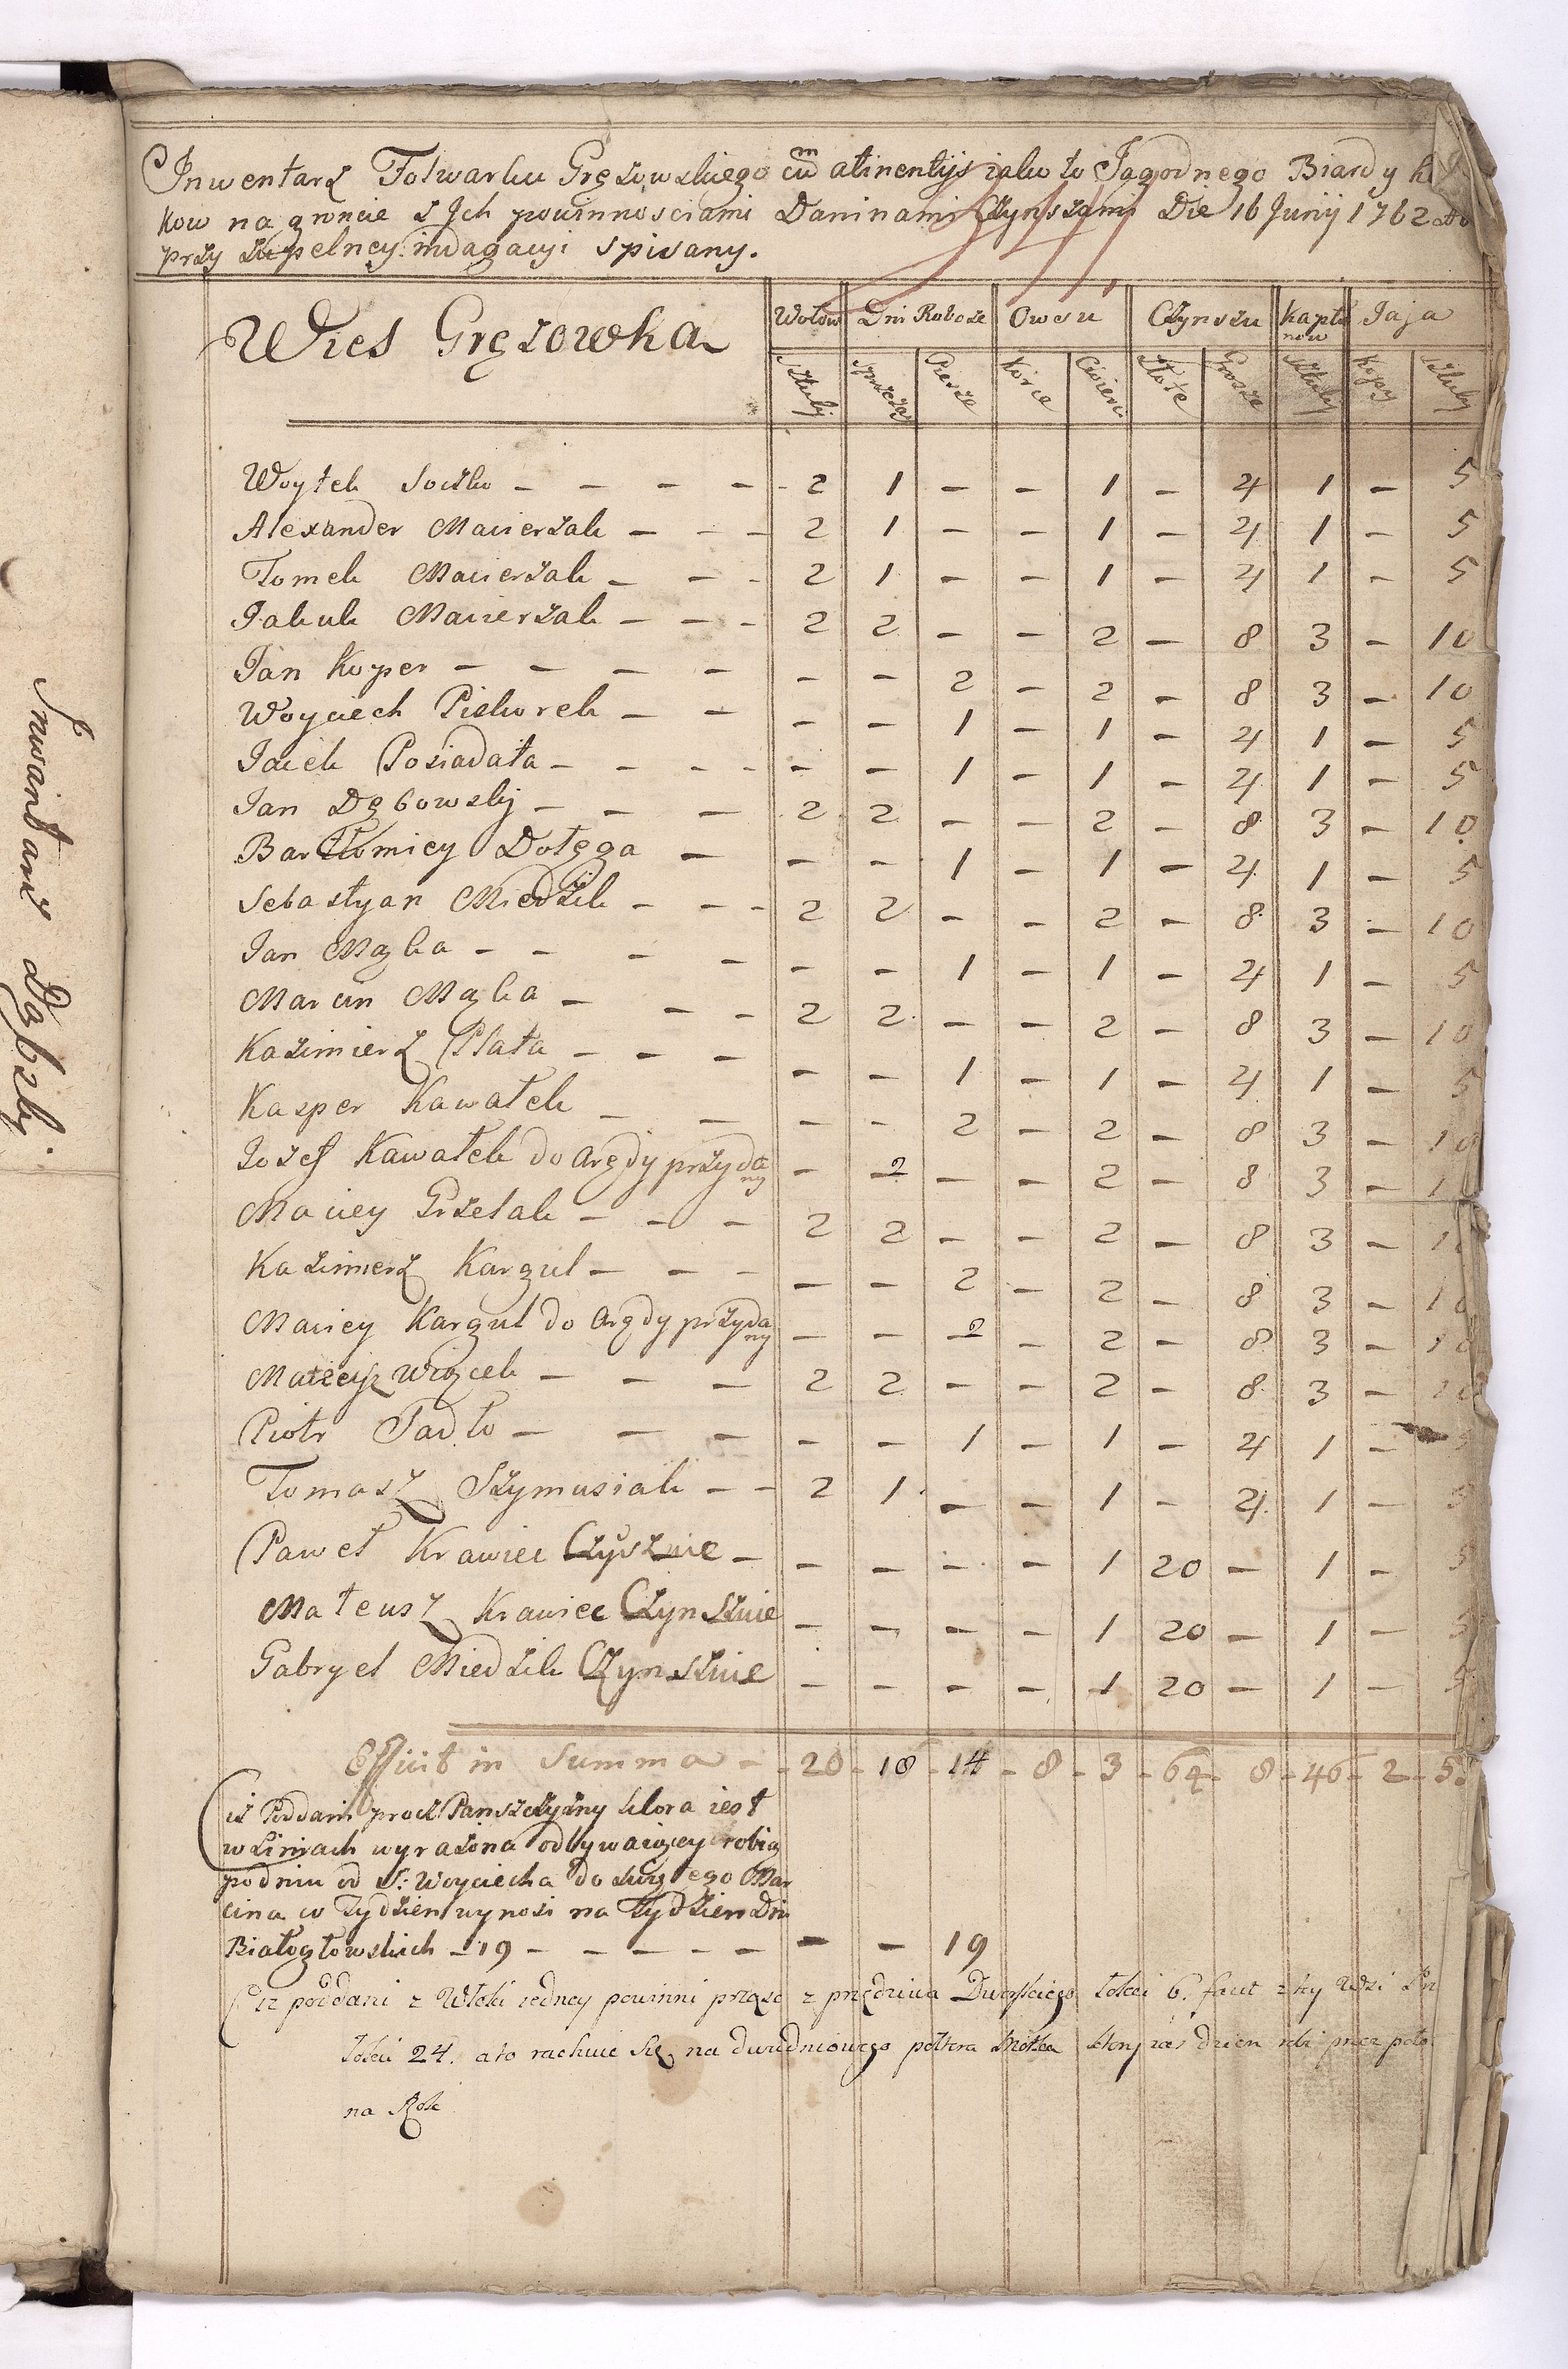 Inwentarz Folwarku Gręzowskiego cum atinentijs iako to Jagodnego Biardy
kow na groncie z Jch powinnosciami Daninami Czynszami Die 16 Junij 1762
przy zupełney indagacyi spisany.
Wies Gręzowka
Wołow Dni Roboze Owsu Czynszu Kapłonow Jaja
Sztuki Sprzężay Piesze Korce Cwierci Złote Grosze Sztuki Kopy Sztuki
Woytek Soczko - - - - 2 1 - - 1 - 4 1 - 5
Alexander Macierzak - - - 2 1 - - 1 - 4 1 - 5
Tomek Macierzak - - - 2 1 - - 1 - 4 1 - 5
Jakub Macierzak - - - 2 2 - - 2 - 8 3 - 10
Jan Koper - - - - - - 2 - 2 - 8 3 - 10
Woyciech Piskorek - - - - 1 - 1 - 4 1 - 5
Jacek Posiadała - - - - - - 1 - 1 - 4 1 - 5
Jan Dębowskj - - - 2 2 - - 2 - 8 3 - 10
Bartłomiey Dołęga - - - 1 - 1 - 4 1 - 5
Sebastyan Miedzik - - - 2 2 - - 2 - 8 3 - 10
Jan Mąka - - - - - - 1 - 1 - 4 1 - 5
Marcin Mąka - - - 2 2 - - 2 - 8 3 - 10
Kazimierz Płata - - - - - 1 - 1 - 4 1 - 5
Kasper Kawałek - - - - 2 - 2 - 8 3 - 10
Jozef Kawałek do Arędy przydany - 2 - - 2 - 8 3 - 1
Maciey Grzelak - - - 2 2 - - 2 - 8 3 - 1
Kazimierz Kargul - - - - - 2 - 2 - 8 3 - 10
Maciey Kargul do Arędy przydany - - 2 - 2 - 8 3 - 10
Mateijsz Wiącek - - - 2 2 - - 2 - 8 3 - 10
Piotr Sadło - - - - - 1 - 1 - 4 1 - 5
Tomasz Szymusiak - - 2 1 - - 1 - 4 1 - 5
Paweł Krawiec Czyszuie - - - - - 1 20 - 1 - 5
Mateusz Krawiec Czynszuie - - - - 1 20 - 1 - 5
Gabryel Miedzik Czynszuie - - - - 1 20 - 1 - 5
Efficit in Summa - 20 - 18 - 14 - 8 - 3 - 64 - 8 - 46 - 2 - 5
Ciż Poddani procz Panszczyzny ktora iest
w Liniach wyrazona odbywaiącey robią
po dniu od S: Woyciecha do Swiętego Mar
cina w Tydzien wynosi na Tydzien Dni
Białogłowskich - 19 - - - - - - - 19
Ciz poddani z Włoki iedney powinni prząsc z przędziwa Dworskiego łokci 6. faut z tey Wsi
łokci 24. a to rachuie się na dwudniowego połtora łokcia ktory zas dzien robi przez poło
na Rok
Inwantarz Dąbski.